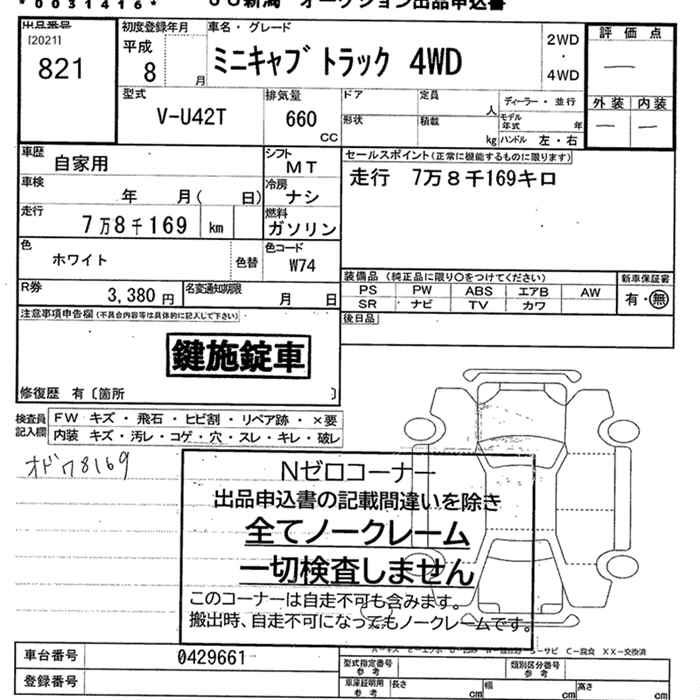 *0031416*
JU新潟 オークション出品申込書
[2021]
821
初度登録年月
平成
8
月
車名・グレード
ミニキャブ トラック 4WD
2WD
・
4WD
評価点
—
外装 内装
— —
型式
V-U42T
排気量
660
CC
ドア
定員
人
形状
積載
kg
ディーラー・並行
モデル年式
年
ハンドル 左・右
車歴
自家用
シフト
MT
セールスポイント(正常に機能するものに限ります)
走行 7万8千169キロ
車検
年 月( 日)
冷房
ナシ
走行
7万8千169
km
燃料
ガソリン
色
ホワイト
色替
色コード
W74
装備品 (純正品に限り○をつけてください)
新車保証書
PS PW ABS エアB AW
SR ナビ TV カワ
有・無
R券
3,380 円
名変通知期限
月 日
後日品
注意事項申告欄(不具合内容等は具体的に記入して下さい)
鍵施錠車
修復歴 有〔箇所 〕
検査員記入欄
FW キズ・飛石・ヒビ割・リペア跡・×要
内装 キズ・汚レ・コゲ・穴・スレ・キレ・破レ
オドワ8169
Nゼロコーナー
出品申込書の記載間違いを除き
全てノークレーム
一切検査しません
このコーナーは自走不可も含みます。
搬出時、自走不可になってもノークレームです。
S-サビ C-腐食 XX-交換済
車台番号
0429661
登録番号
型式指定番号
参考
類別区分番号
参考
車庫証明用
参考
長さ
cm
幅
cm
高さ
cm